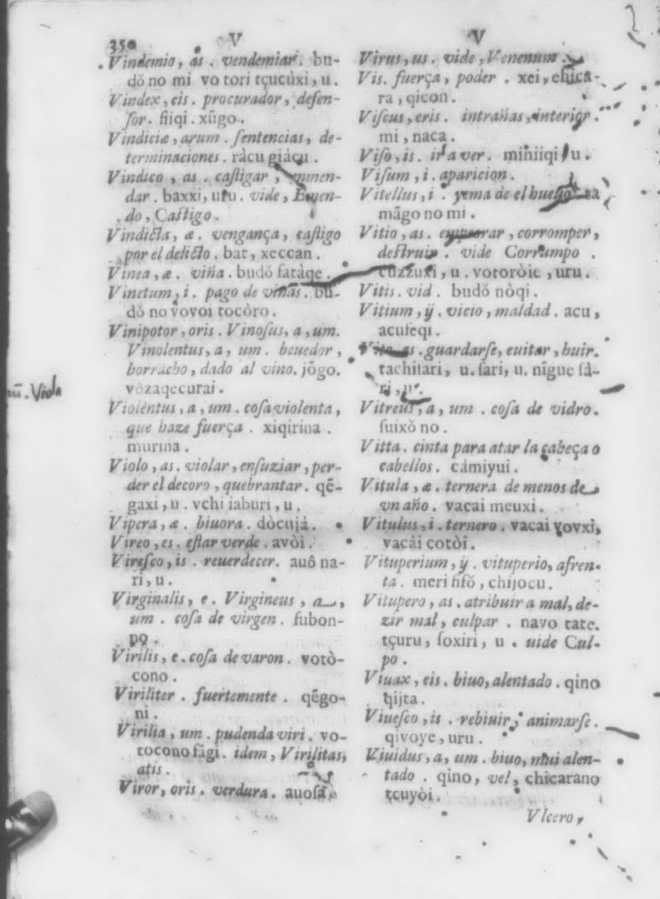 350 V V
Vindemio, as . vendemiar . bu-
dõ no mi vo tori tçucuxi, u.
Vindex, cis . procurador, defen-
ſor . ſiiqi . xũgo.
Vindiciæ, arum . ſentencias, de-
terminaciones . ràcu giácu .
Vindico, as . caſtigar, emmen-
dar . baxxi, uru . vide, Emen-
do, Caſtigo .
Vindicta, æ . vengança, caſtigo
por el delicto . bat, xeccan .
Vinea, æ . viña . budŏ fatàqe .
Vinetum, i . pago de viñas . bu-
dŏ no vovoi tocòro .
Vinipotor, oris . Vinoſus, a, um.
Vinolentus, a, um . beuedor,
borracho, dado al vino . jŏgo.
vòzaqecurai .
Violentus, a, um . coſa violenta,
que haze fuerça . xiqirina .
murina .
Violo, as . violar, enſuziar, per-
der el decoro, quebrantar . qẽ-
gaxi, u . vchi iaburi, u .
Vipera, æ . biuora . dòcujà .
Vireo, es . eſtar verde . avòi .
Vireſco, is . reuerdecer . auŏ na-
ri, u .
Virginalis, e . Virgineus, a,
um . coſa de virgen . fubon-
no .
Virilis, e . coſa de varon . votò-
cono .
Viriliter . fuertemente . qẽgo-
ni .
Virilia, um . pudenda viri . vo-
tocono fàgi . idem, Virilitas,
atis .
Viror, oris . verdura . auoſa .
iii. Viola
Virus, us . vide, Venenum .
Vis . fuerça, poder . xei, chica-
ra, qicon .
Viſcus, eris . intrañas, interior .
mi, naca .
Viſo, is . ir a ver . miniiqi, u .
Viſum, i . aparicion .
Vitellus, i . yema de el hueuo . ta
mãgo no mi .
Vitio, as . empeorar, corromper,
deſtruir . vide Corrumpo .
cuzzuxi, u . votoròie, uru .
Vitis . vid . budŏ nòqi .
Vitium, ÿ . vicio, maldad . acu,
acufeqi .
Vito, as . guardarſe, euitar, huir.
tachifari, u . ſari, u . nĩgue ſà-
ri, u .
Vitreus, a, um . coſa de vidro .
ſuixŏ no .
Vitta . cinta para atar la cabeça o
cabellos . cámiyui .
Vitula, æ . ternera de menos de
vn año . vacai meuxi .
Vitulus, i . ternero . vacai vovxi,
vacài cotòi .
Vituperium, ÿ . vituperio, afren-
ta . meri fifŏ, chijocu .
Vitupero, as . atribuir a mal, de-
zir mal, culpar . navo tate.
tçuru, ſoxiri, u . uide Cul-
po .
Viuax, cis . biuo, alentado . qino
qijta .
Viueſco, is . rebiuir, animarſe .
qivoye, uru .
Viuidus, a, um . biuo, mui alen-
tado . qino, vel, chicarano
tçuyòi .
Vlcero,